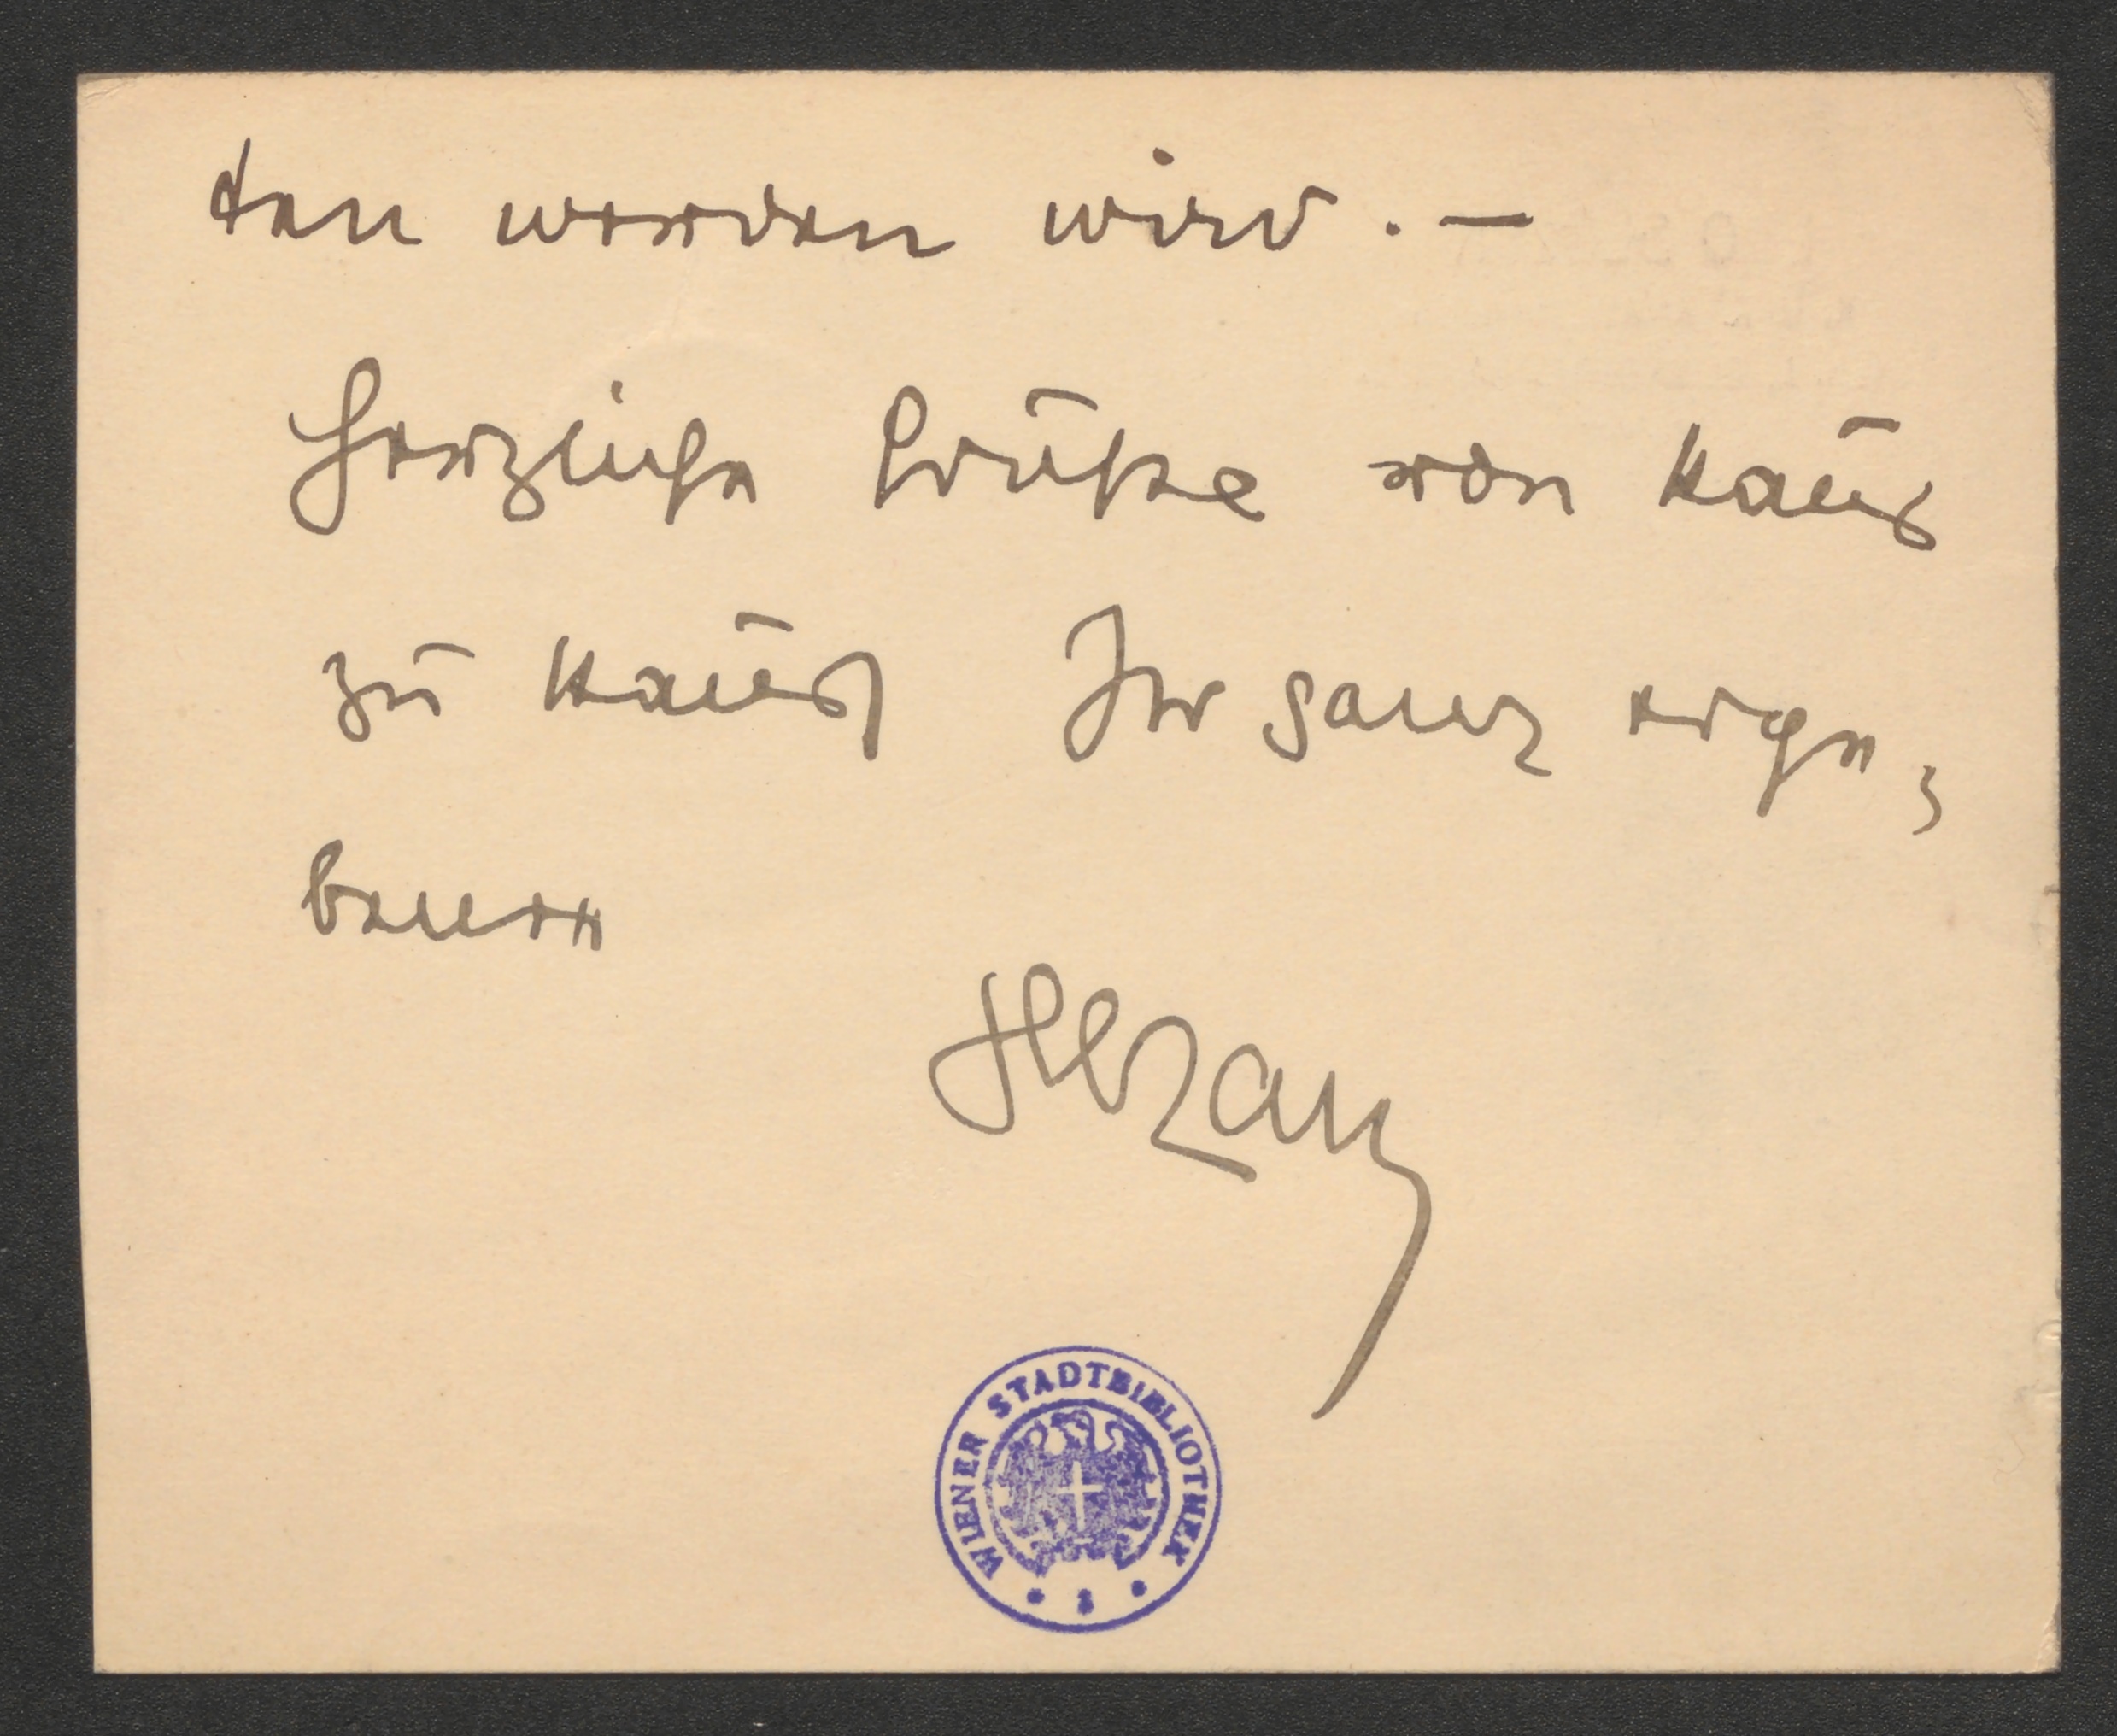 ten werden wird. —
Herzliche Grüße von Haus
zu Haus Ihr ganz erge-
bener
WIENER STADTBIBLIOTHEK